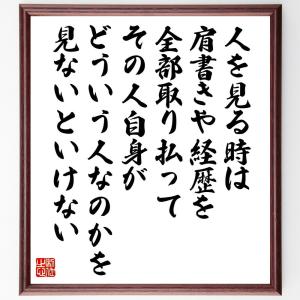 人を見る時は
肩書きや経歴を
全部取り払って
その人自身が
どういう人なのかを
見ないといけない